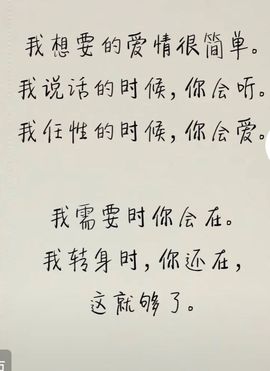 我想要的爱情很简单。
我说话的时候，你会听。
我任性的时候，你会爱。
我需要时你会在。
我转身时，你还在，
这就够了。